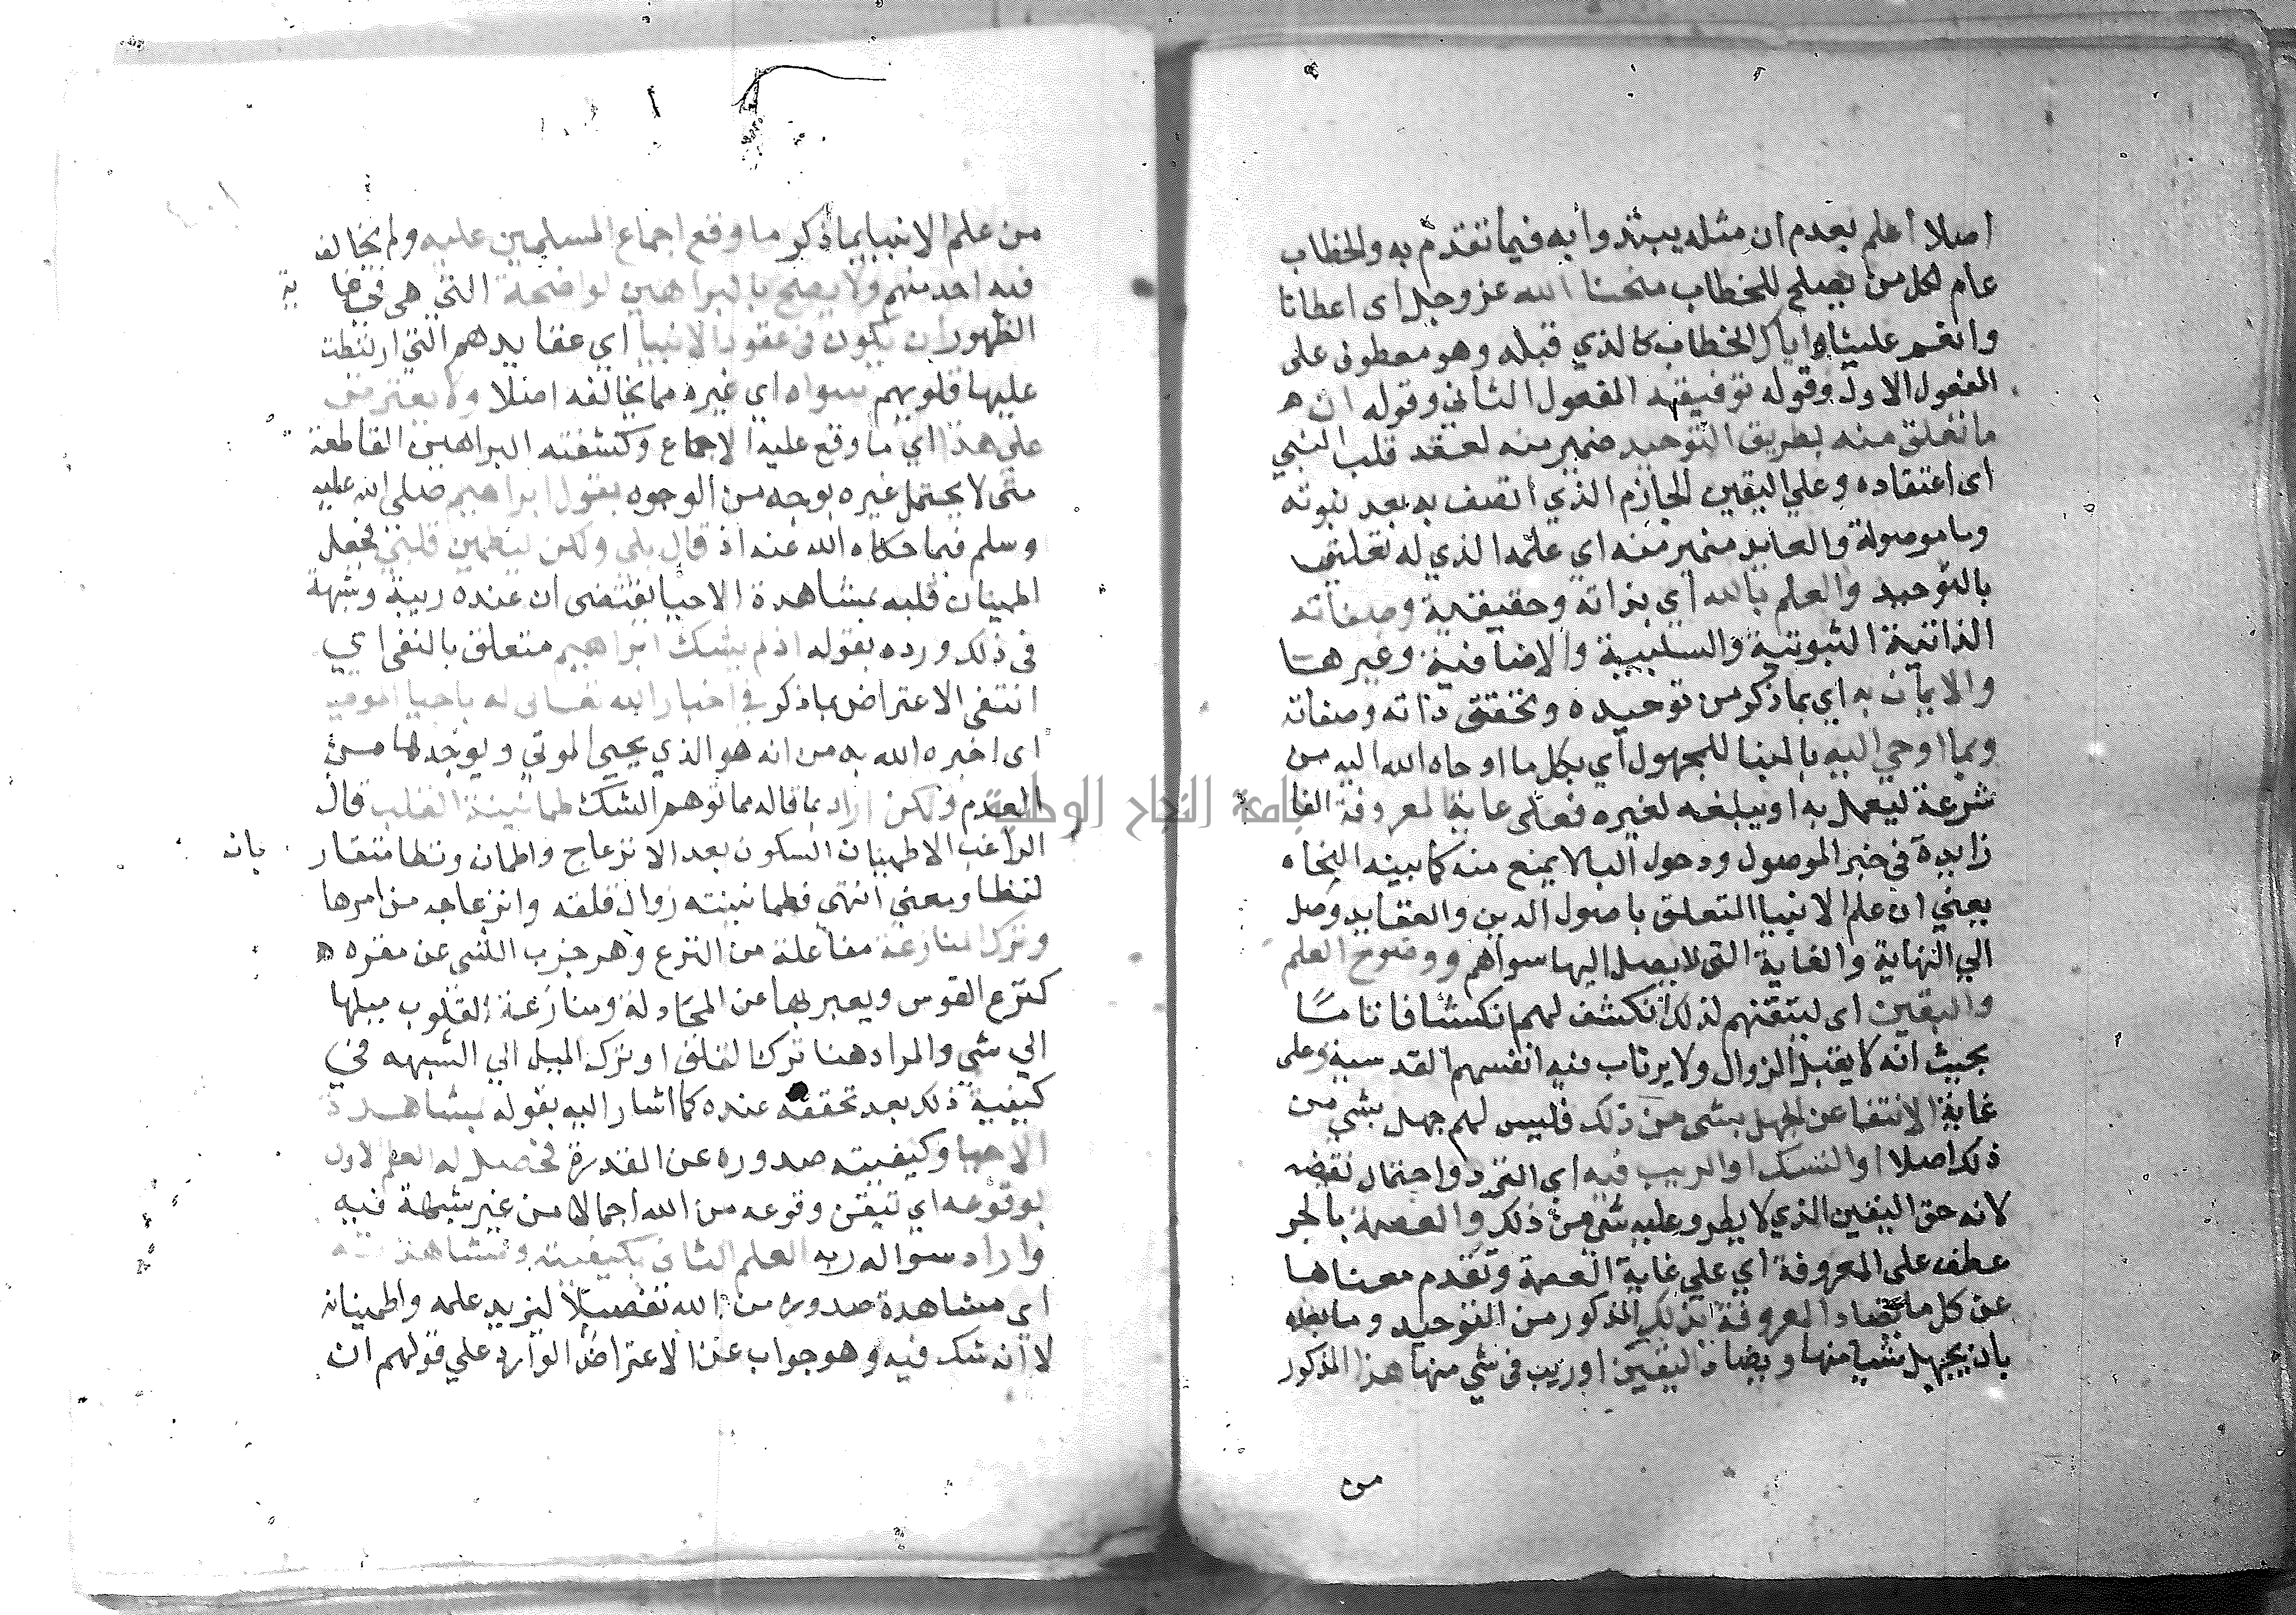 اصلا اعلم بعدم ان مثله يبتدوا به فيما تقدم به والخطاب
عام لكل من يصلح للخطاب منحنا الله عز وجل اى اعطانا
وانعم علينا واياك الخطاب كالذي قبله وهو معطوف على
المفعول الاول وقوله توفيقه المفعول الثاني وقوله ان
ما تعلق منه بطريق التوحيد ضمير منه لعقد قلب النبي
اى اعتقاده وعلي اليقين الجازم الذي اتصف به بعد نبوته
وما موصولة والعايد ضمير منه اي علمه الذي له تعليق
بالتوحيد والعلم بالله اي بذاته وحقيقته وصفاته
الذاتية الثبوتية والسلبية والاضافية وغيرها
والايمان به اي بما ذكر من توحيده وتحقق ذاته وصفاته
وبما اوحي اليه بالبنا للمجهول اي بكل ما اوحاه الله اليه من
شرعة ليعمل به او يبلغه لغيره فعلى غاية المعروفة الفا
زايدة في خبر الموصول ودخول البا لا يمنع منه كما بينه النحاه
يعني ان علم الانبيا المتعلق باصول الدين والعقايد وصل
الي النهاية والغاية التى لا يصل اليها سواهم ووضوح العلم
واليقين اى ليتقنهم لذلك انكشف لهم انكشافا تامًا
بحيث انه لا يقبل الزوال ولا يرتاب فيه انفسهم القدسية وعلى
غاية الانتفا عن الجهل بشى من ذلك فليس لهم جهل بشي من
ذلك اصلا او الشك او الريب فيه اي التردد واحتمال نقيضه
لانه حق اليقين الذي لا يطرو عليه شي من ذلك والعصمة بالجر
عطف على المعروفة اي علي غاية العصمة وتقدم معناها
عن كل ما يضاد المعروفة بذلك المذكور من التوحيد وما بعده
بان يجهل شيا منها ويضاد اليقين او ريب في شي منها هذا المذكور
من
من علم الانبيا بما ذكر ما وقع اجماع المسلمين عليه ولم يخالف
فيه احد منهم ولا يصح بالبراهين الواضحة التي هي في غا ية
الظهور ان يكون في عقود الانبيا اي عقايدهم التي ارتبطت
عليها قلوبهم سواه اي غيره مما يخالفه اصلا ولا يعترض
على هذا اي ما وقع عليه الاجماع وكشفته البراهين القاطعة
متى لا يحتمل غيره بوجه من الوجوه بقول ابراهيم صلى الله عليه
وسلم فيما حكاه الله عنه اذ قال بلى ولكن ليطمين قلبي فجعل
اطمينان قلبه بمشاهدة الاحيا يقتضى ان عنده ريبة وشبهة
في ذلك ورده بقوله اذ لم يشك ابراهيم متعلق بالنفى اي
انتفى الاعتراض بما ذكر في اخبار الله تعالى له باحيا الموتى
اى اخبره الله به من انه هو الذي يحيي الموتي ويوجدها من
العدم ولكن اراد بما قاله مما توهم الشك طمانينة القلب قال
الراغب الاطمينان السكون بعد الانزعاج واطمان وتطا متقار بان
لفظا ومعني انتهي فطمانينته زوال قلقه وانزعاجه من امرها
وترك المنازعة مفاعلة من النزع وهر جذب الشى عن مقره
كنزع القوس ويعبر بها عن المجادلة ومنازعة القلوب ميلها
الي شي والمراد هنا ترك القلق او ترك الميل الي الشبهه في
كيفية ذلك بعد تحققه عنده كما اشار اليه بقوله بمشاهدة
الاحيا وكيفيته صدوره عن القدرة فحصل له العلم الاول
بوقوعه اي تيقن وقوعه من الله اجمالا من غير شبهة فيه
واراد سواله ربه العلم الثاني بكيفيته ومشاهدته
اى مشاهدة صدوره من الله تفصيلا ليزيد علمه واطمينانه
لا انه شك فيه وهو جواب عن الاعتراض الوارد علي قولهم ان
جامعة النجاح الوطنية